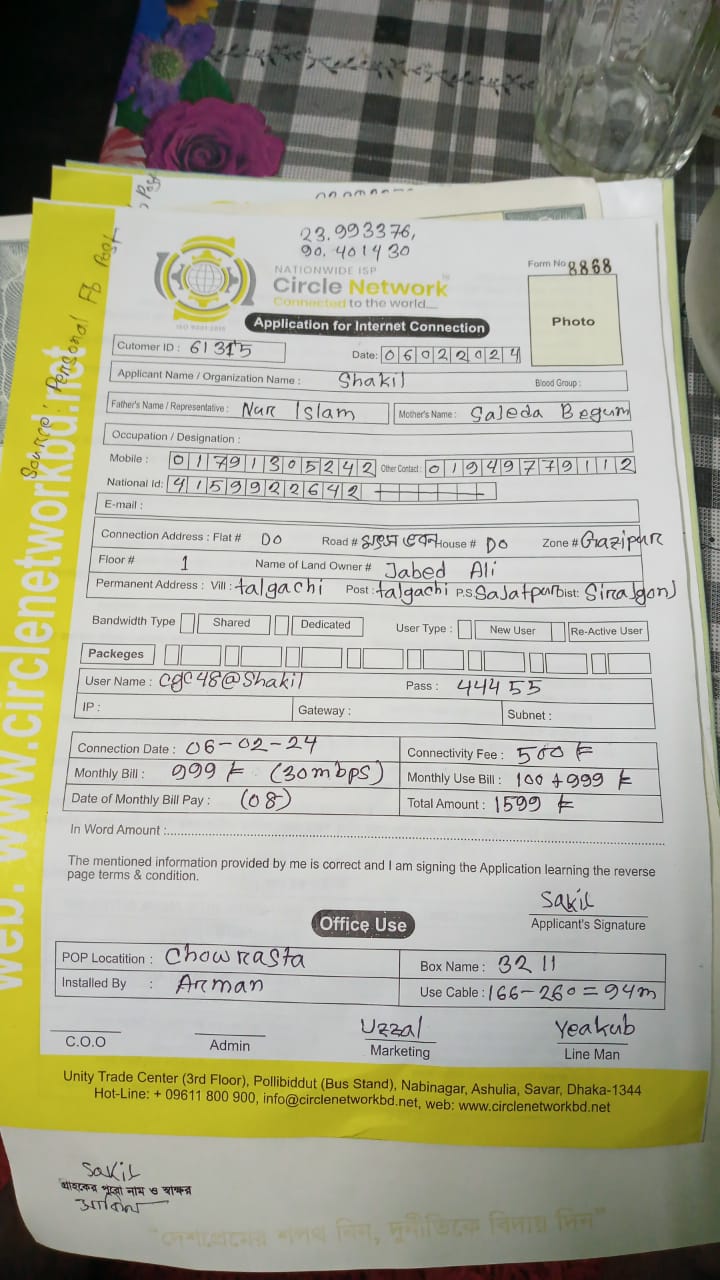 23.993376,
90.401430
NATIONWIDE ISP
Circle Network
Connected to the world...
ISO 9001:2015
Form No 8868
Photo
Application for Internet Connection
Cutomer ID : 61315
Date: 06022024
Applicant Name / Organization Name : Shakil Blood Group :
Father's Name / Representative : Nur Islam Mother's Name : Saleda Begum
Occupation / Designation :
Mobile : 01791305242 Other Contact : 01949779112
National Id: 4159922642
E-mail :
Connection Address : Flat # DO Road # ভবন House # DO Zone # Gazipur
Floor # 1 Name of Land Owner # Jabed Ali
Permanent Address : Vill : talgachi Post : talgachi P.S. Sajatpur Dist: Sirajgonj
Bandwidth Type Shared Dedicated User Type : New User Re-Active User
Packeges
User Name : cgc48@Shakil Pass : 44455
IP : Gateway : Subnet :
Connection Date : 06-02-24 Connectivity Fee : 500 ৳
Monthly Bill : 999 ৳ (30mbps) Monthly Use Bill : 100 + 999 ৳
Date of Monthly Bill Pay : (08) Total Amount : 1599 ৳
In Word Amount :
The mentioned information provided by me is correct and I am signing the Application learning the reverse
page terms & condition.
Sakil
Applicant's Signature
Office Use
POP Locatition : Chowrasta Box Name : 3211
Installed By : Arman Use Cable : 166-260 = 94m
Uzzal Yeakub
C.O.O Admin Marketing Line Man
Unity Trade Center (3rd Floor), Pollibiddut (Bus Stand), Nabinagar, Ashulia, Savar, Dhaka-1344
Hot-Line: + 09611 800 900, info@circlenetworkbd.net, web: www.circlenetworkbd.net
web: www.circlenetworkbd.net
Source: Personal Fb Post
Sakil
গ্রাহকের পুরো নাম ও স্বাক্ষর
"দেশপ্রেমের শপথ নিন, দুর্নীতিকে বিদায় দিন"